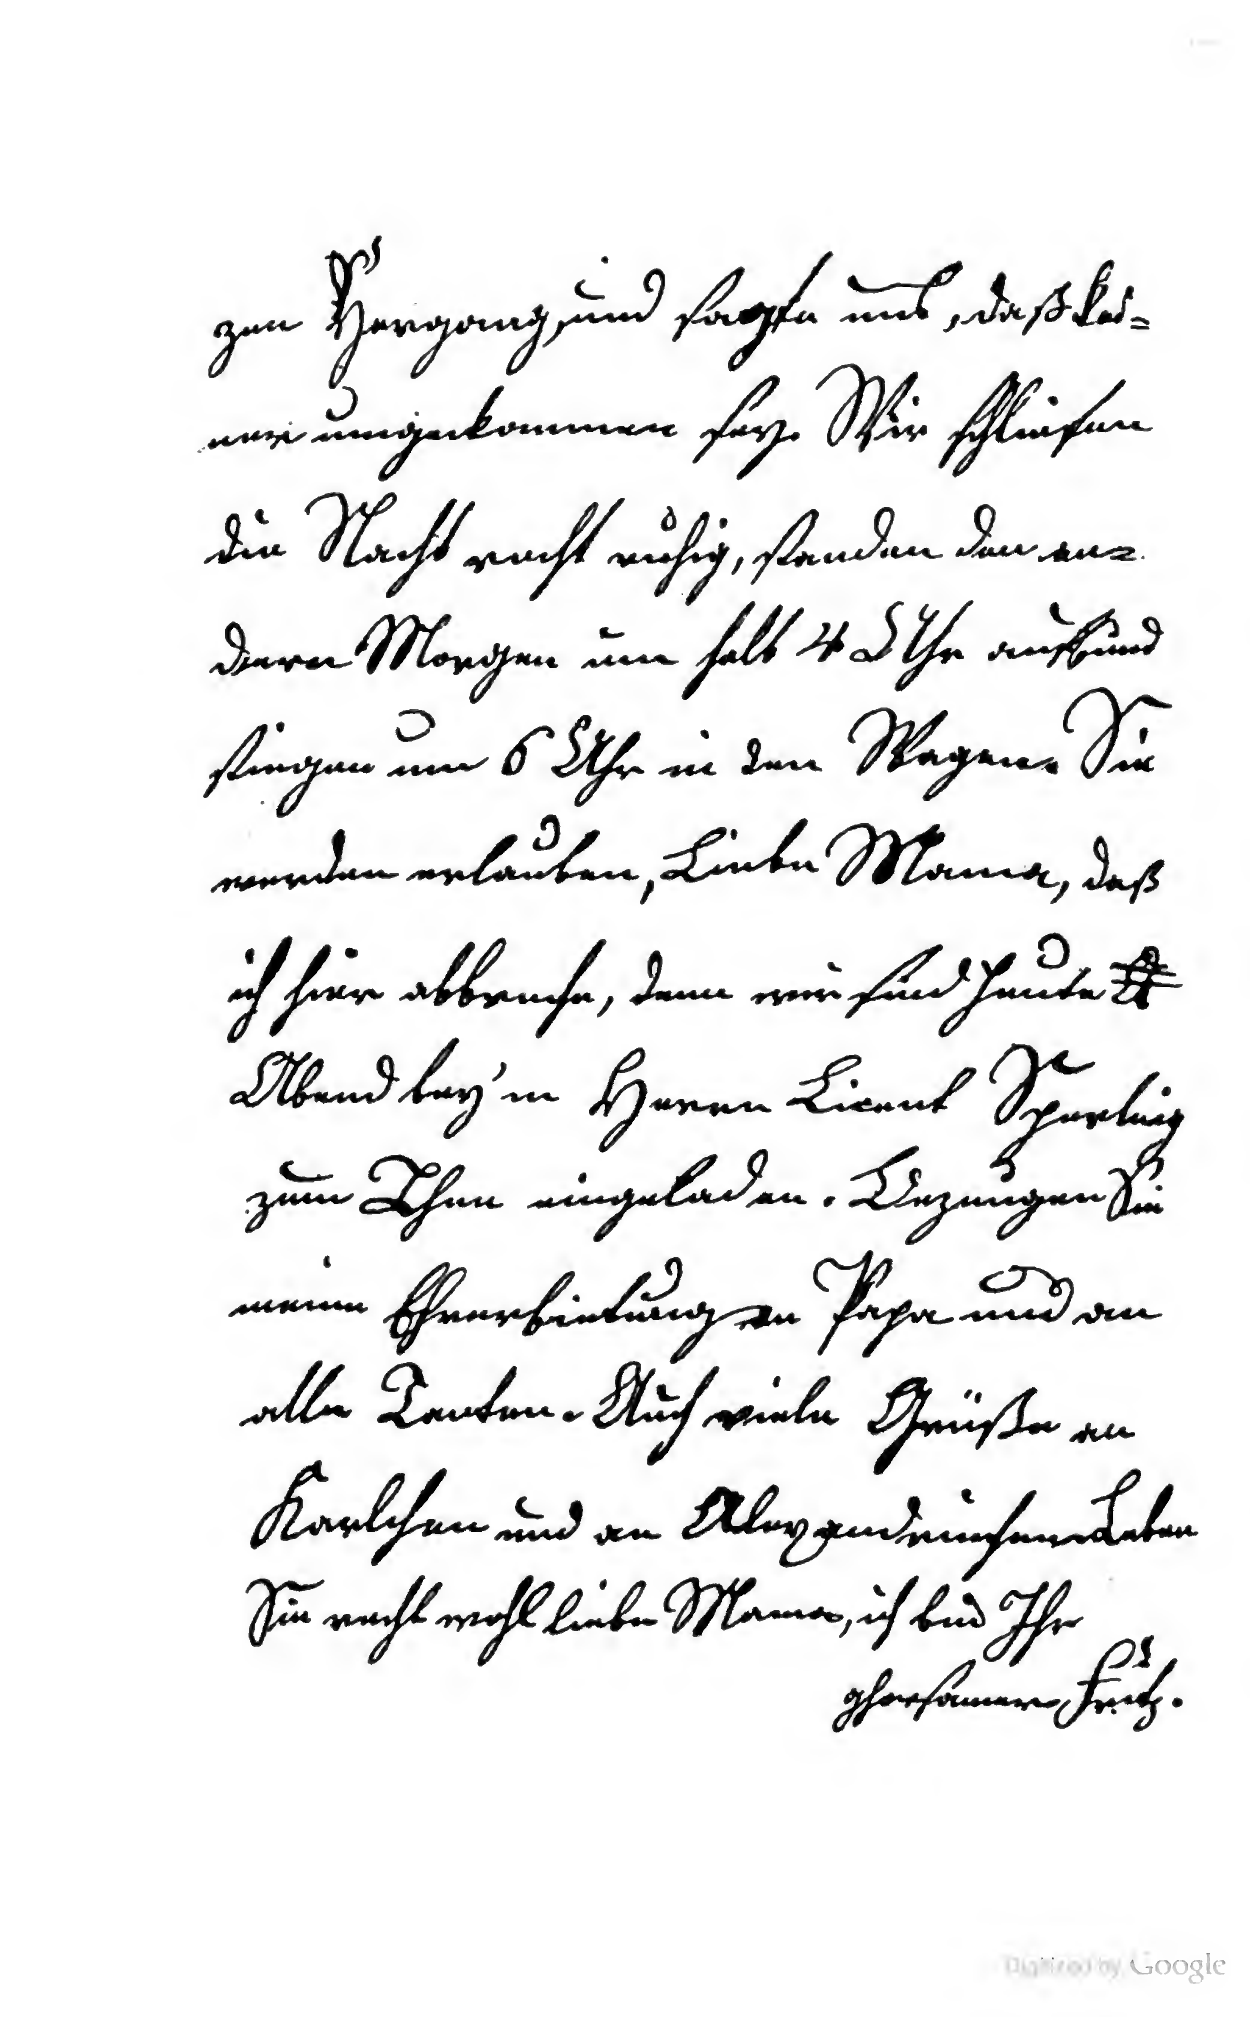 zen Hergang, und sagte uns, daß kei=
ner umgekommen sey. Wir schliefen
die Nacht recht ruhig, standen den an=
dern Morgen um halb 4 Uhr auf und
stiegen um 6 Uhr in den Wagen. Sie
werden erlauben, Liebe Mama, daß
ich hier abbreche, denn wir sind heute
Abend bey'm Herrn Licent Sperling
zum Thee eingeladen. Bezeugen Sie
meine Ehrerbietung an Papa und an
alle Tanten. Auch viele Grüße an
Karlchen und an Alexandrinchen. Leben
Sie recht wohl liebe Mama, ich bin Ihr
ghorsamer Fritz.
Digitized by Google